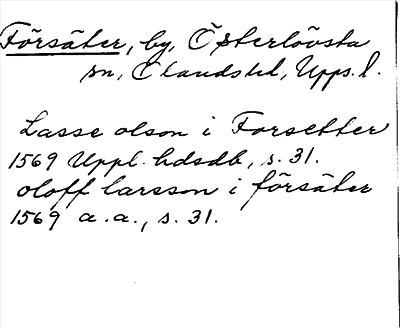 Försäter, by, Österlövsta
sn, Olandshd, Upps. l.
Lasse olson i Forsetter
1569 Uppl. hdsdb, s. 31.
oloff larsson i försäter
1569 a. a., s. 31.